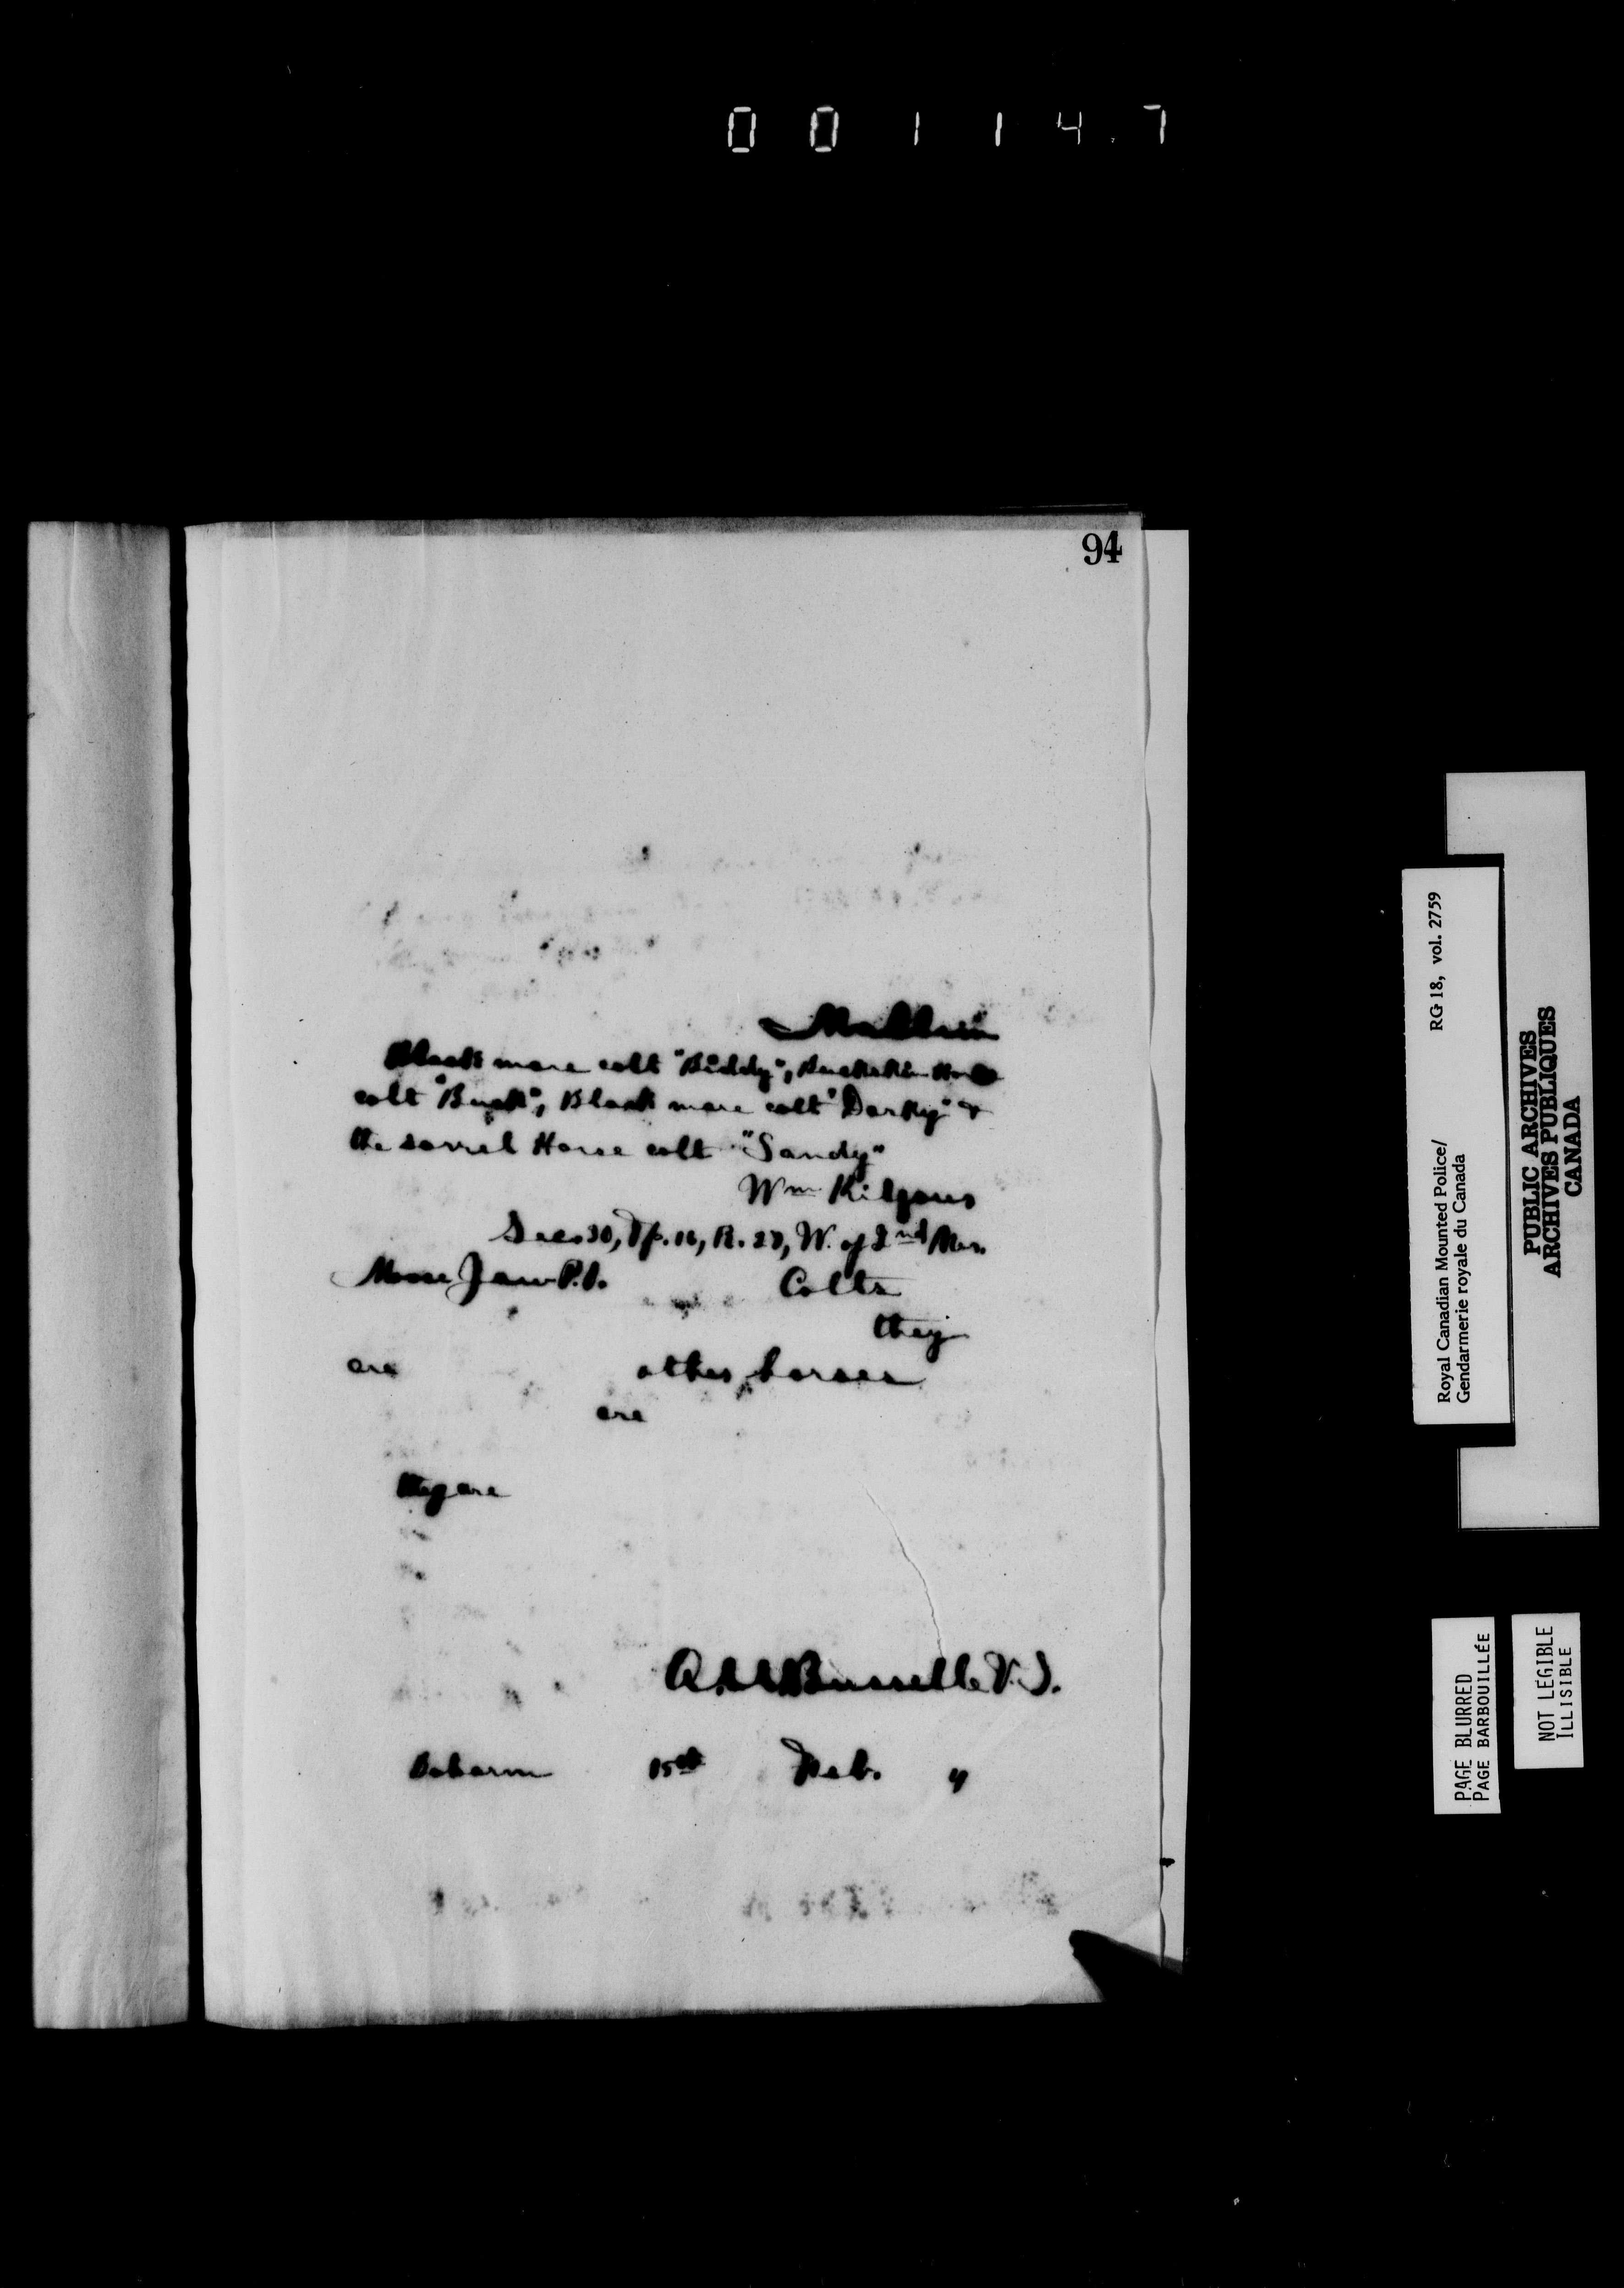 001147
94
Mallein
Black mare colt "Biddy", Buckskin Horse
colt "Buck", Black mare colt "Darky" &
the sorrel Horse colt "Sandy"
Wm Kilgour
Sec 30, Tp. 16, R. 27, W. of 2nd Mer.
Moose Jaw P.O. Colts
they
are other horses
are
they are
Burnett V.S.
Boharm 15th Feb. 4
Royal Canadian Mounted Police/ RG 18, vol. 2759
Gendarmerie royale du Canada
PUBLIC ARCHIVES
ARCHIVES PUBLIQUES
CANADA
PAGE BLURRED
PAGE BARBOUILLÉE
NOT LEGIBLE
ILLISIBLE